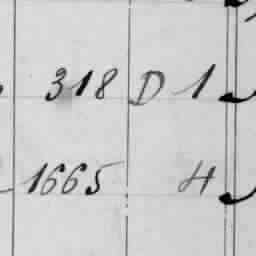 318 D 1
1665 H